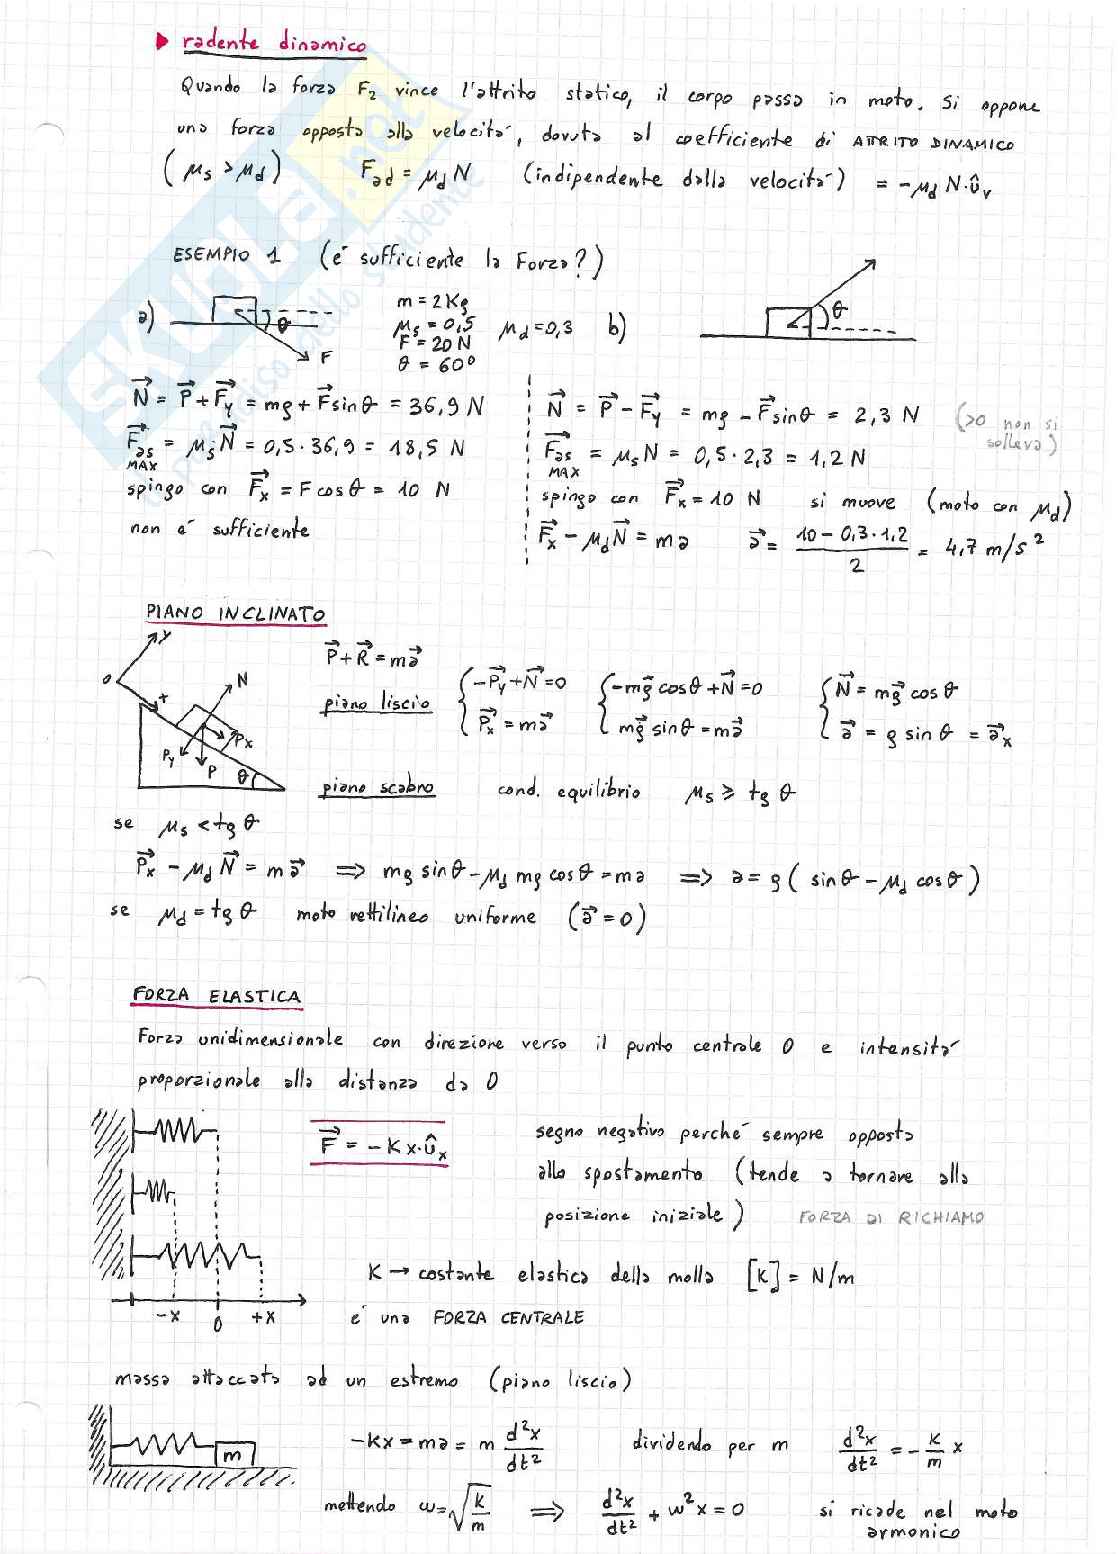 ▶ radente dinamico
Quando la forza F₂ vince l'attrito statico, il corpo passa in moto. Si oppone
una forza opposta alla velocità, dovuta al coefficiente di ATTRITO DINAMICO
(μs > μd) Fad = μd N (indipendente dalla velocità) = -μd N·ûv
ESEMPIO 1 (è sufficiente la Forza?)
a) θ F
m = 2Kg
μs = 0,5 μd = 0,3
F = 20 N
θ = 60°
b) θ
N = P + Fy = mg + F sinθ = 36,9 N
Fas MAX = μs N = 0,5 · 36,9 = 18,5 N
spingo con Fx = F cosθ = 10 N
non è sufficiente
N = P - Fy = mg - F sinθ = 2,3 N (>0 non si solleva)
Fas MAX = μs N = 0,5 · 2,3 = 1,2 N
spingo con Fx = 10 N si muove (moto con μd)
Fx - μd N = ma a = (10 - 0,3·1,2)/2 = 4,7 m/s²
PIANO INCLINATO
y O x N Px Py P θ
P + R = ma
piano liscio { -Py + N = 0 { -mg cosθ + N = 0 { N = mg cosθ
Px = ma mg sinθ = ma a = g sinθ = ax
piano scabro cond. equilibrio μs ⩾ tg θ
se μs < tg θ
Px - μd N = ma ⇒ mg sinθ - μd mg cosθ = ma ⇒ a = g ( sinθ - μd cosθ )
se μd = tg θ moto rettilineo uniforme (a = 0)
FORZA ELASTICA
Forza unidimensionale con direzione verso il punto centrale O e intensità
proporzionale alla distanza da O
F = -K x·ûx
segno negativo perché sempre opposta
allo spostamento (tende a tornare alla
posizione iniziale) FORZA DI RICHIAMO
K → costante elastica della molla [K] = N/m
-x 0 +x
è una FORZA CENTRALE
massa attaccata ad un estremo (piano liscio)
m
-Kx = ma = m d²x/dt² dividendo per m d²x/dt² = -K/m x
mettendo ω = √(K/m) ⇒ d²x/dt² + ω²x = 0 si ricade nel moto
armonico
SKUOLA.net